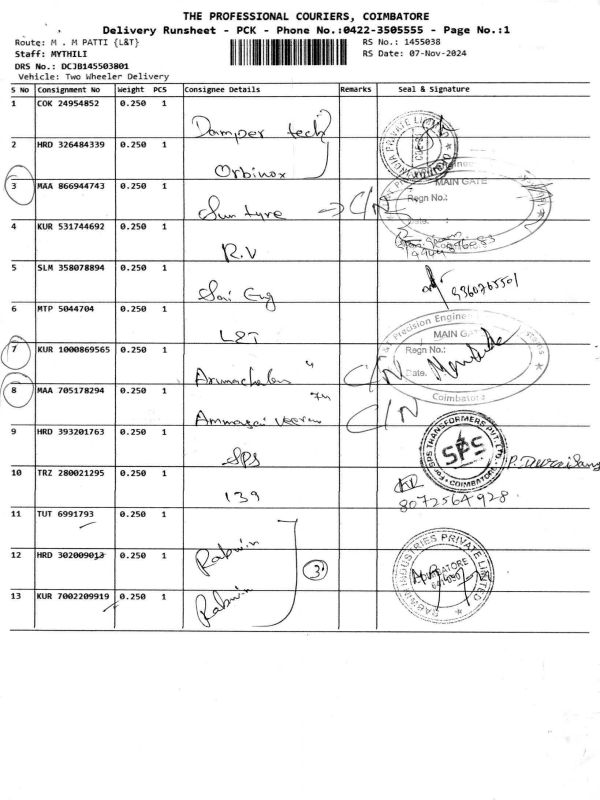 THE PROFESSIONAL COURIERS, COIMBATORE
Delivery Runsheet - PCK - Phone No.:0422-3505555 - Page No.:1
Route: M . M PATTI {L&T} RS No.: 1455038
Staff: MYTHILI RS Date: 07-Nov-2024
DRS No.: DCJB145503801
Vehicle: Two Wheeler Delivery
S No Consignment No Weight PCS Consignee Details Remarks Seal & Signature
1 COK 24954852 0.250 1 Damper tech
2 HRD 326484339 0.250 1 Orbinox
MAIN GATE
Regn No.:
3 MAA 866944743 0.250 1 Sun tyre → C/N
4 KUR 531744692 0.250 1 R.V
5 SLM 358078894 0.250 1 Sai Eng 9360765501
6 MTP 5044704 0.250 1 L&T
Precision Engine
MAIN GA
Regn No.:
Date.
Coimbatore
7 KUR 1000869565 0.250 1 Arunachalam " C/N
8 MAA 705178294 0.250 1 Ammasai C/N
9 HRD 393201763 0.250 1 SPS
SPS TRANSFORMERS PVT. LTD.
SPS
COIMBATORE
10 TRZ 280021295 0.250 1 139 8072564928
11 TUT 6991793 0.250 1
12 HRD 302009013 0.250 1 Rabwin 3
INDUSTRIES PRIVATE LIMITED
13 KUR 7002209919 0.250 1 Rabwin